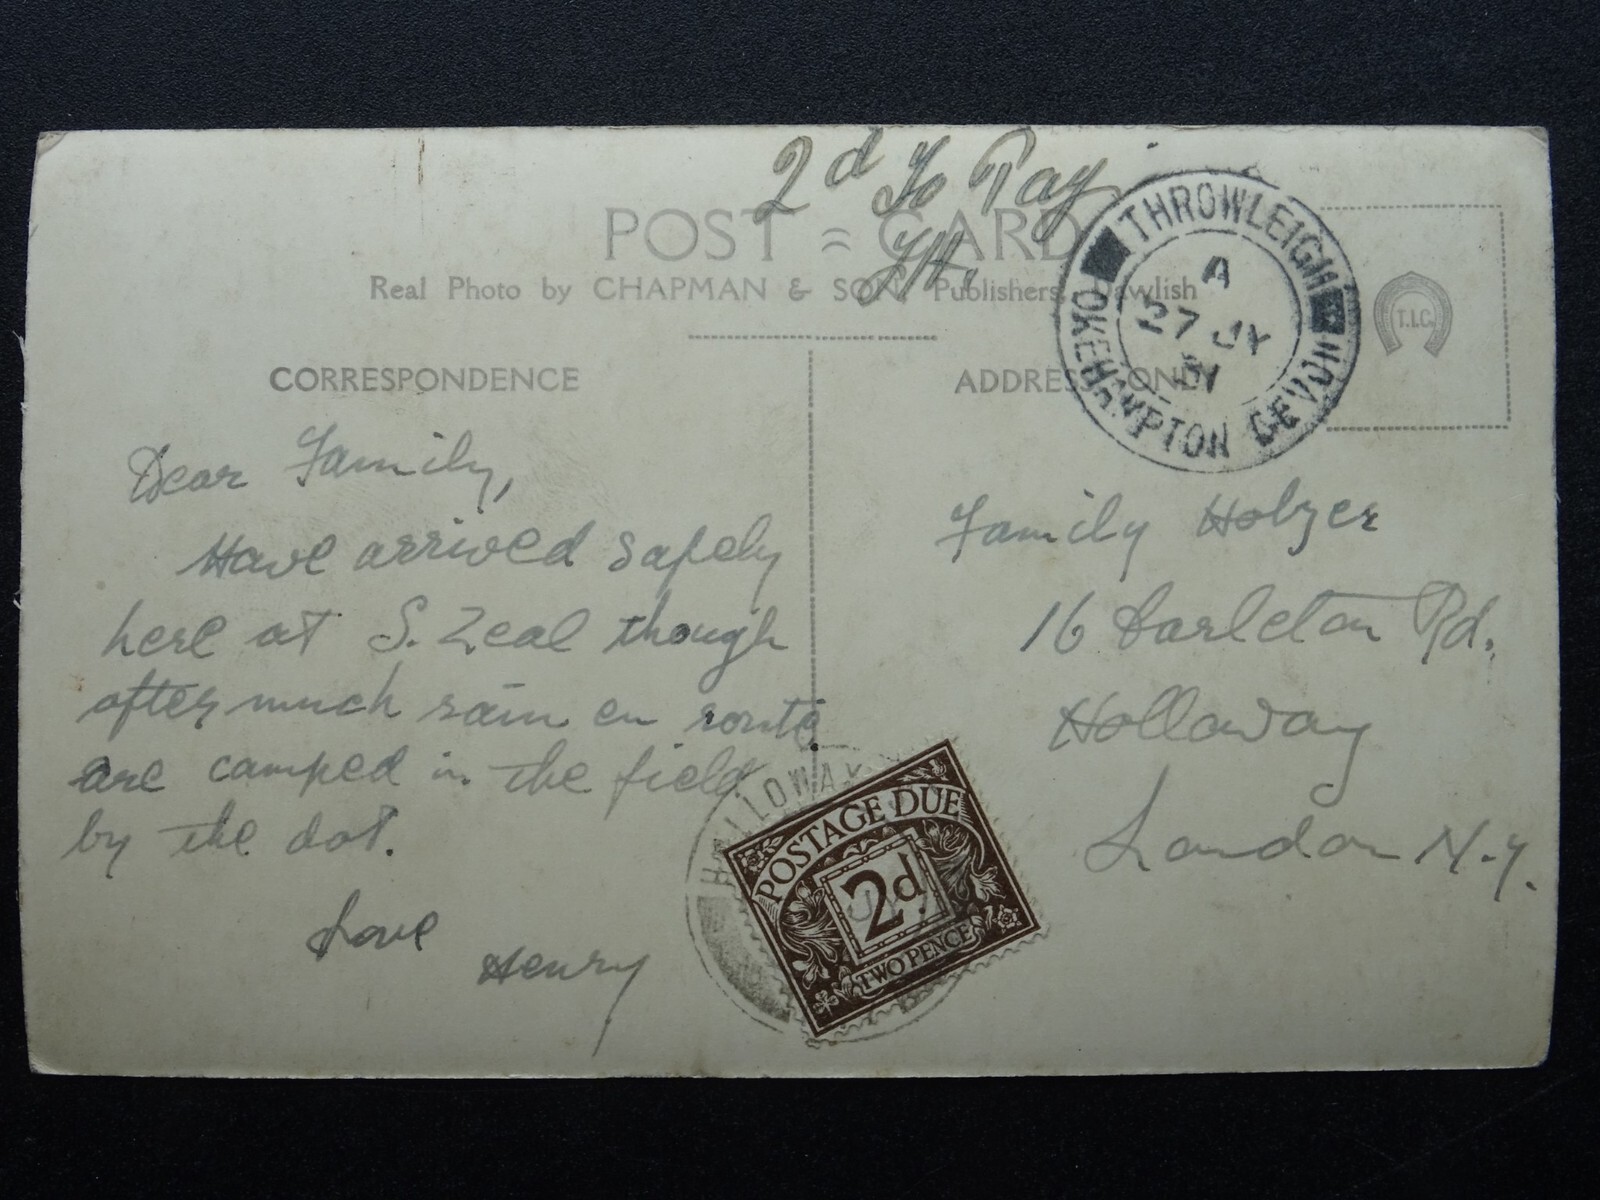 2d To Pay
POST = CARD
Real Photo by CHAPMAN & SON, Publishers, Dawlish
THROWLEIGH
A
27 JY
51
OKEHAMPTON DEVON
T.I.C.
CORRESPONDENCE
ADDRESS ONLY
Dear Family,
Have arrived safely
here at S. Zeal though
after much rain en route
are camped in the field
by the dot.
Love
Henry
Family Holzer
16 Carleton Rd.
Holloway
London N.7.
HOLLOWAY
POSTAGE DUE
2d.
TWO PENCE